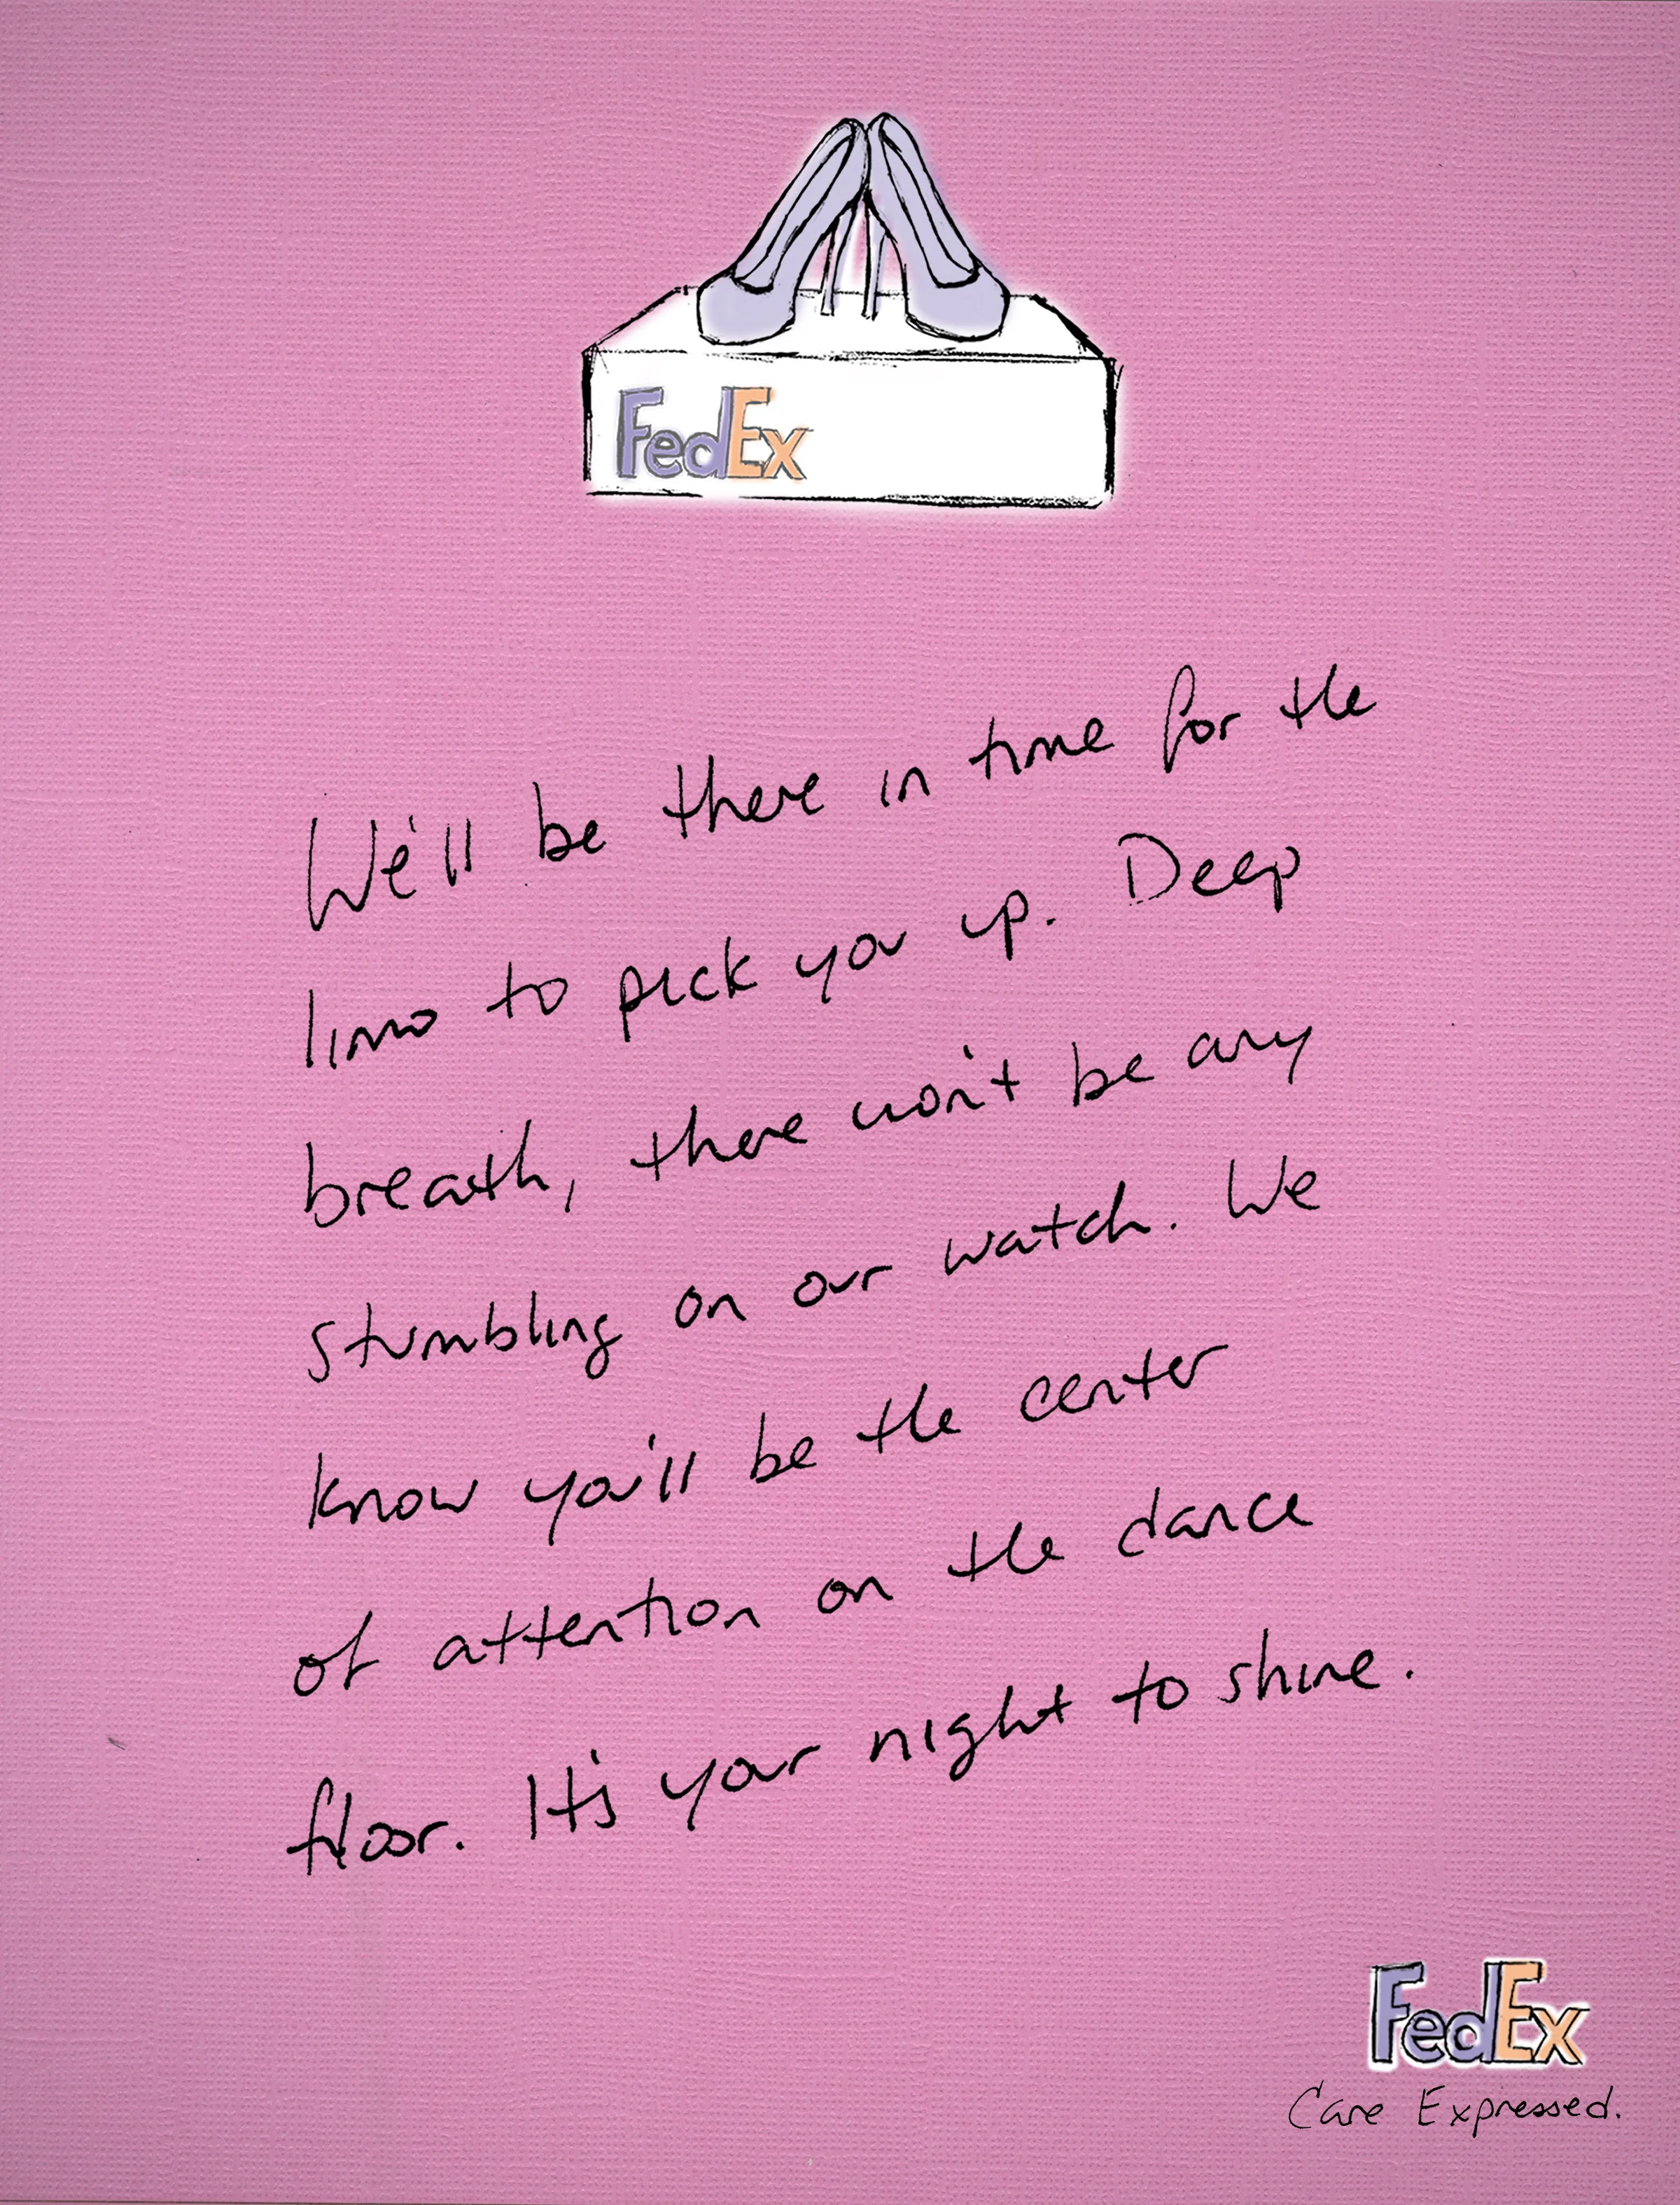 FedEx
We'll be there in time for the
limo to pick you up. Deep
breath, there won't be any
stumbling on our watch. We
know you'll be the center
of attention on the dance
floor. It's your night to shine.
FedEx
Care Expressed.